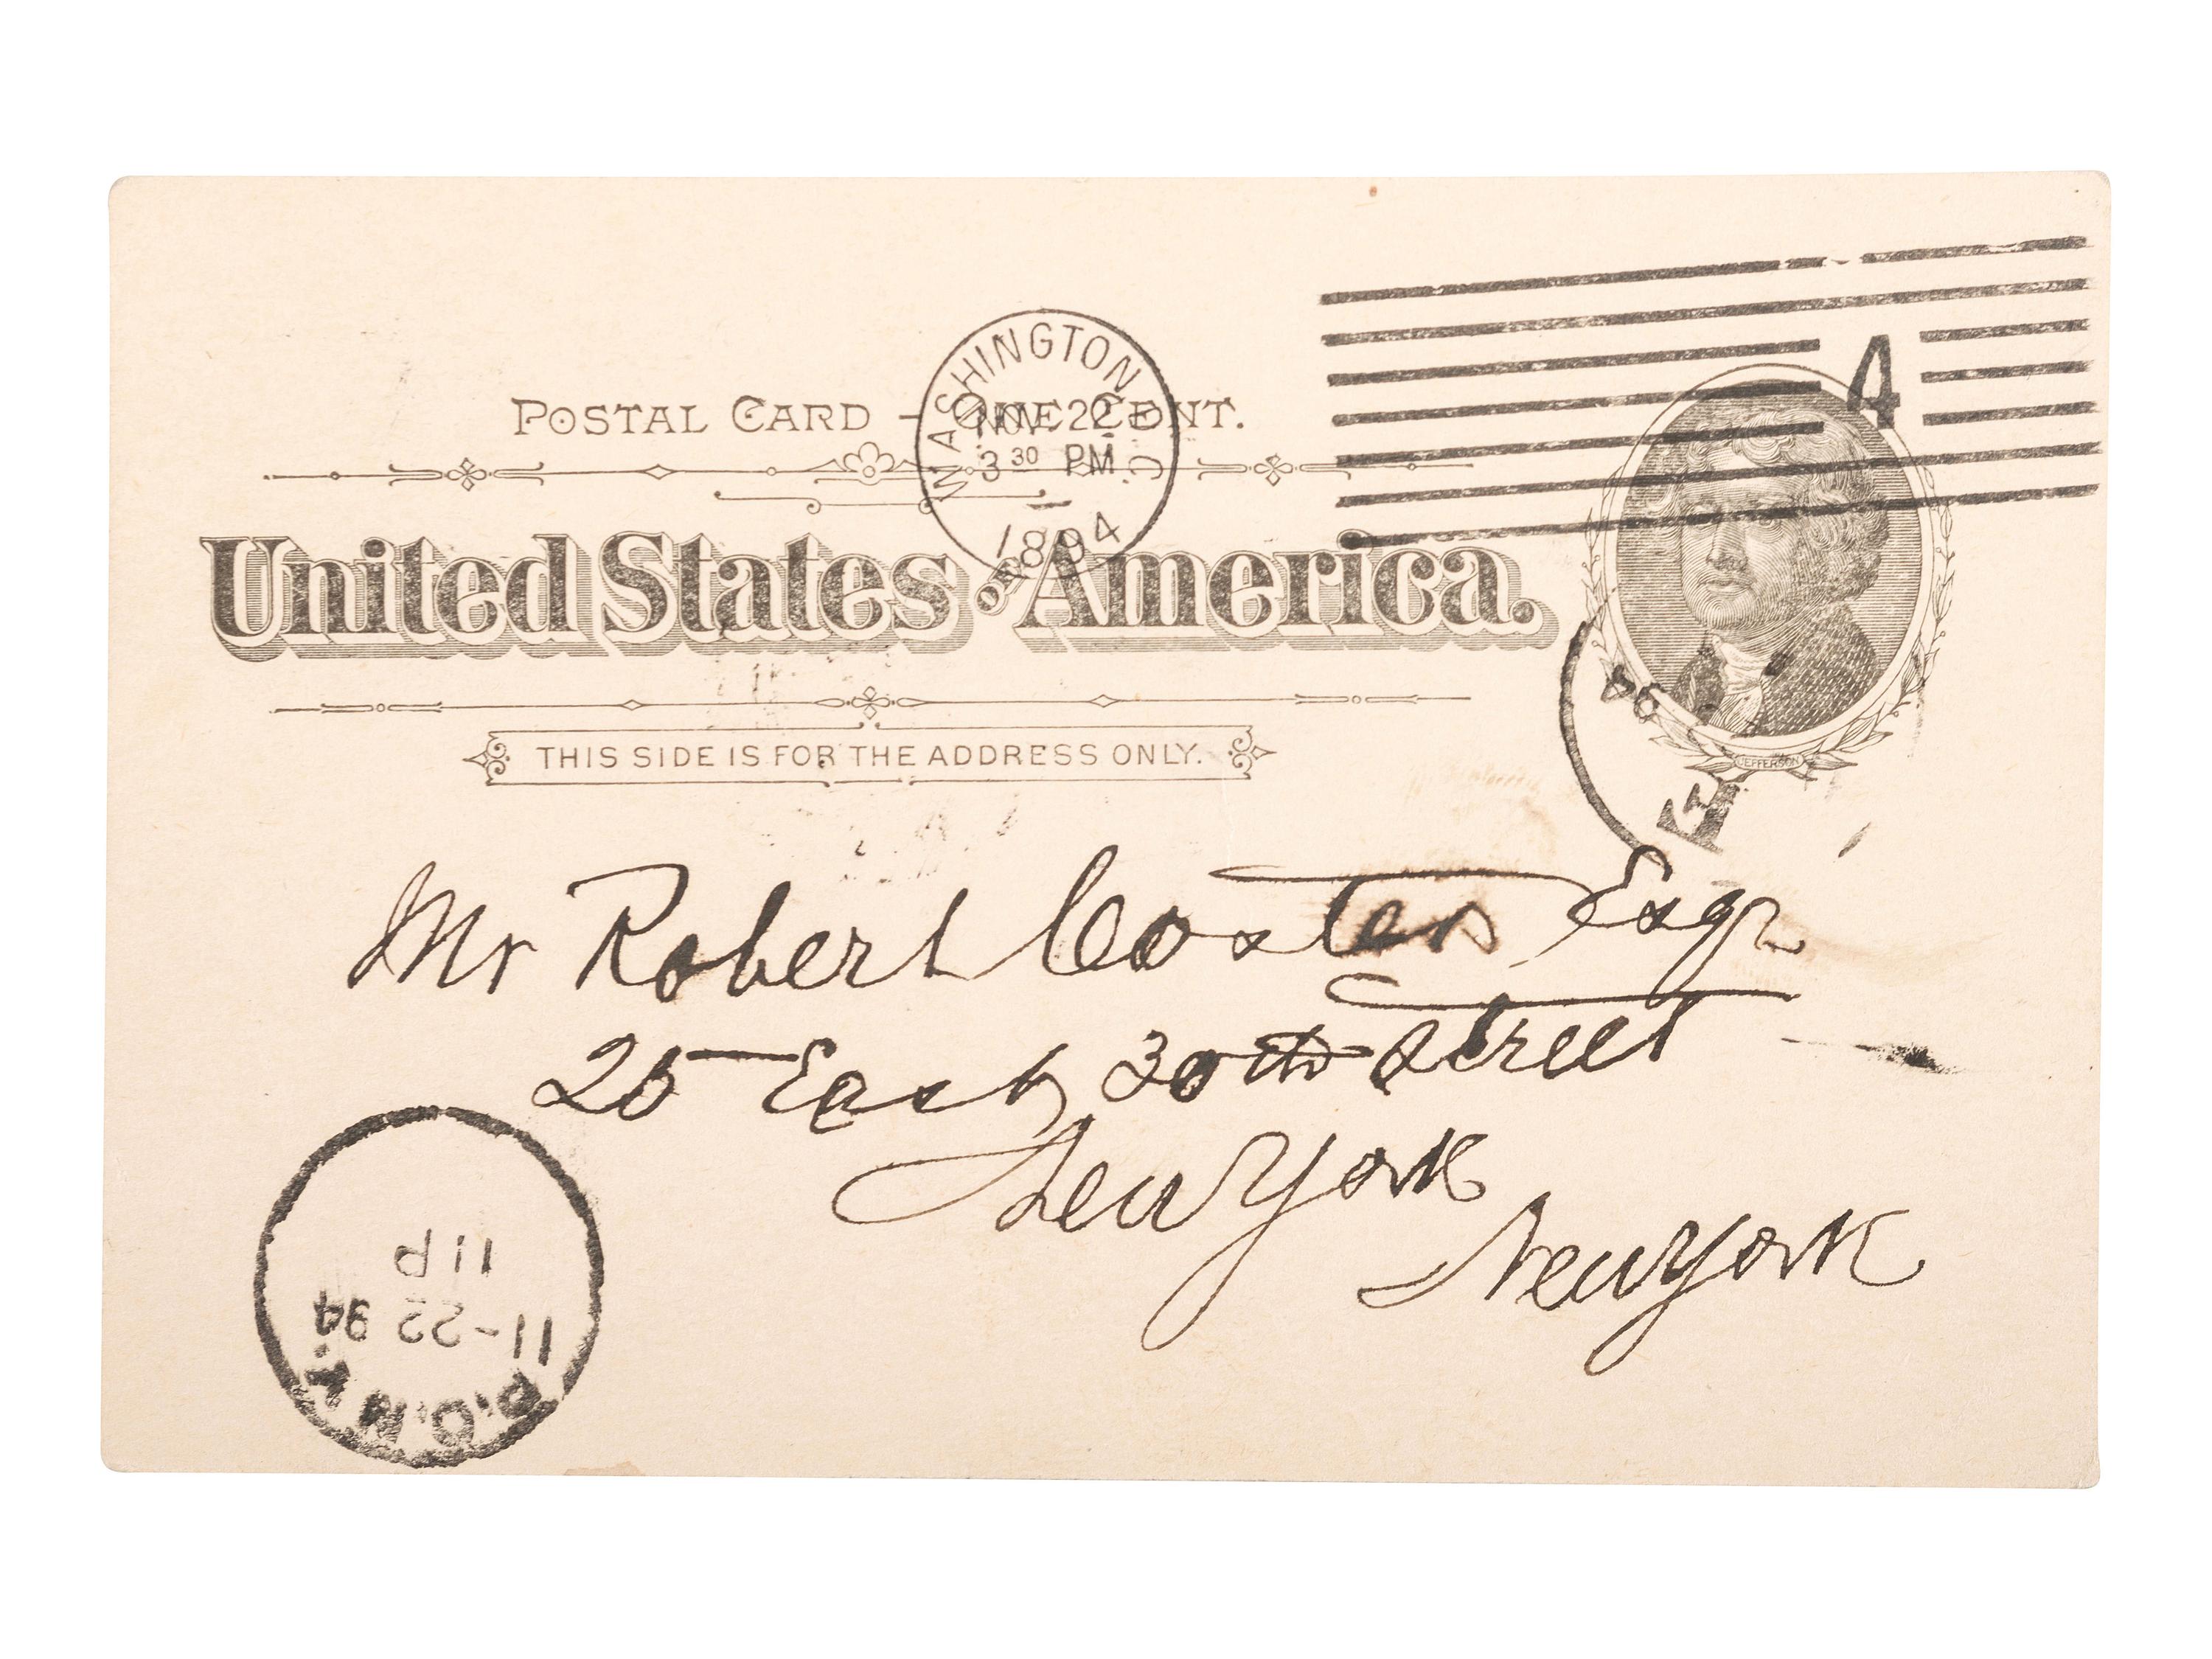 POSTAL CARD – ONE CENT.
WASHINGTON D.C.
NOV 22
3 30 PM
1894
4
United States of America.
JEFFERSON
94
E
THIS SIDE IS FOR THE ADDRESS ONLY.
Mr Robert Coster Esqr
25 East 30th Street
New York
New York
P.O.N.Y.
11-22 94
11 P